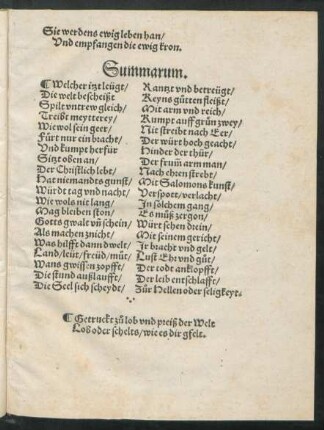 Sie werdens ewig leben han/
Vnd empfangen die ewig kron.
Summarum.
¶ Welcher itzt leügt/
Die welt bescheißt
Spilt vntrew gleich/
Treibt meytterey/
Wie wol sein geer/
Fürt nur ein bracht/
Vnd kumpt herfür
Sitzt oßen an/
Der Christlich lebt/
Hat niemandts gunst/
Würdt tag vnd nacht/
Wie wols nit lang/
Mag bleiben ston/
Gotts gwalt vñ schein/
Als machen znicht/
Was hilfft dann dwelt/
Land/leüt/freüd/müt/
Wans gwissen zopfft/
Die stund außlaufft/
Die Seel sich scheydt/
Rantzt vnd betreügt/
Keyns gütten fleißt/
Mit arm vnd reich/
Rumpt auff grün zwey/
Nit streibt nach Eer/
Der würt hoch geacht/
Hinder der thür/
Der frum̃ arm man/
Nach ehren strebt/
Mit Salomons kunst/
Verspott/verlacht/
In solchem gang/
Es müß zergon/
Würt sehen drein/
Mit seinem gericht/
Ir bracht vnd gelt/
Lust Ehr vnd güt/
Der todt anklopfft/
Der leib entschlafft/
Zür Hellen oder seligkeyt.
¶ Getruckt zü lob vnd preiß der Welt
Lob oder schelts/wie es dir gfelt.